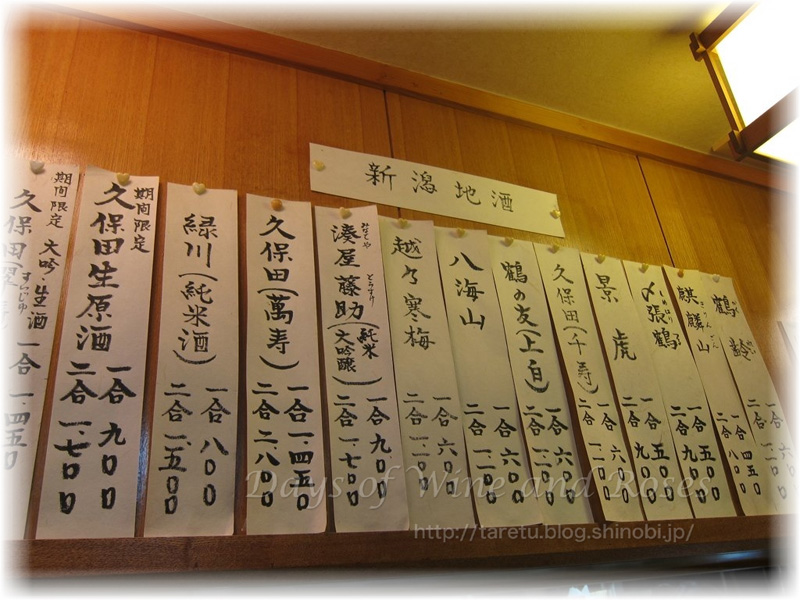 新潟地酒
鶴齢
麒麟山
〆張鶴
一合 五〇〇
二合 九〇〇
景虎
一合 五〇〇
二合 九〇〇
久保田(千寿)
鶴の友(上白)
一合 六〇〇
二合 一.一〇〇
八海山
一合 六〇〇
二合 一.一〇〇
越乃寒梅
一合 六〇〇
二合 一.一〇〇
湊屋藤助(純米大吟醸)
みなとや とうすけ
一合 九〇〇
二合 一.七〇〇
久保田(萬寿)
一合 一.四五〇
二合 二.八〇〇
緑川(純米酒)
一合 八〇〇
二合 一.五〇〇
期間限定
久保田生原酒
一合 九〇〇
二合 一.七〇〇
期間限定 大吟・生酒
久保田翠寿
すいじゅ
一合 一.四五〇
Days of Wine and Roses
http://taretu.blog.shinobi.jp/